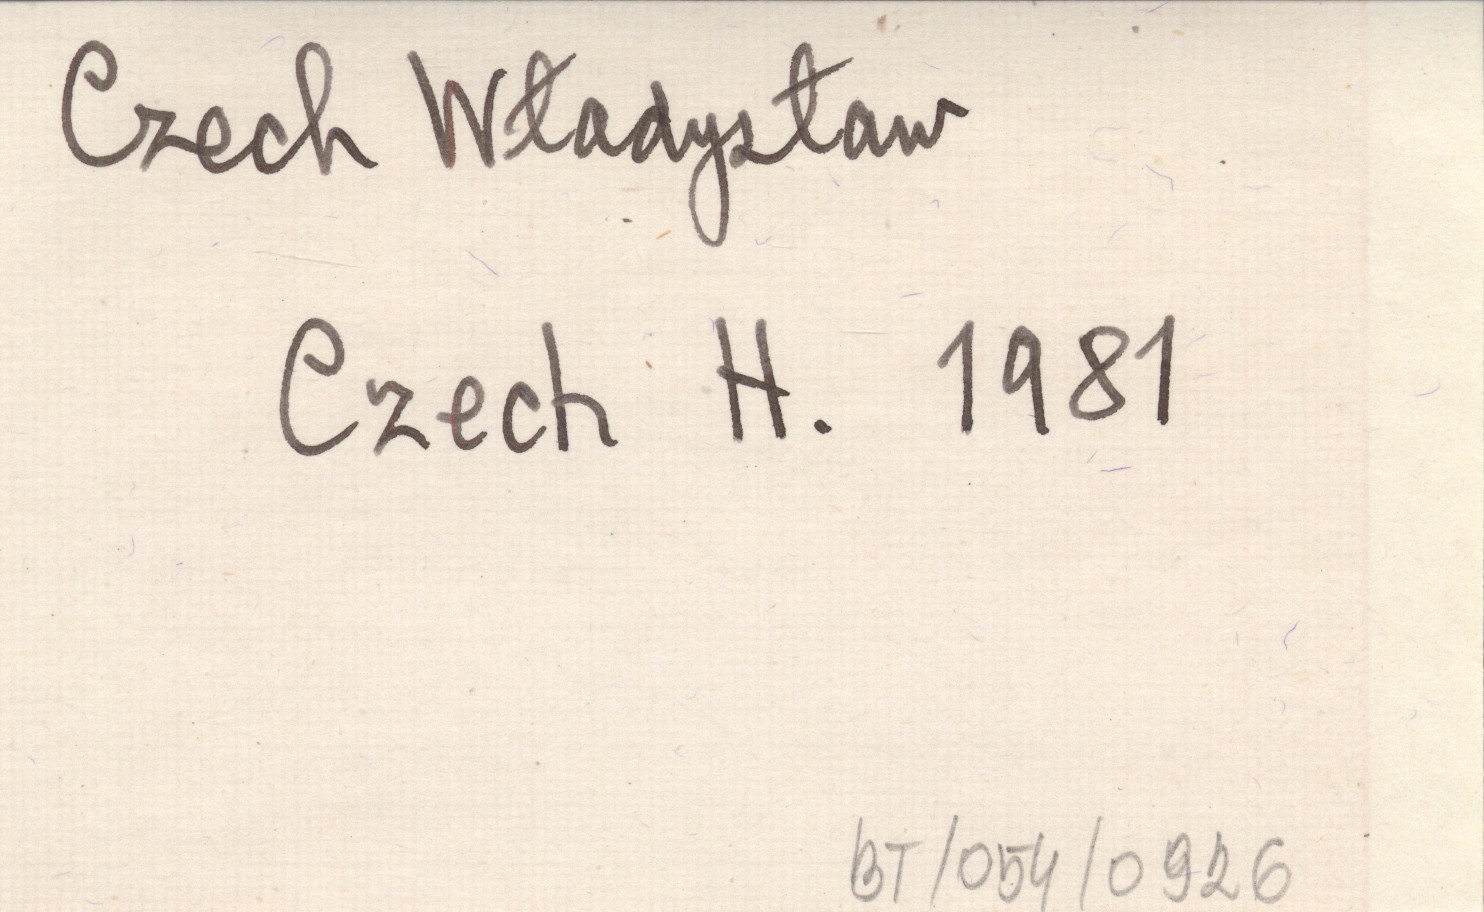 Czech Władysław
Czech H. 1981
BT/054/0926